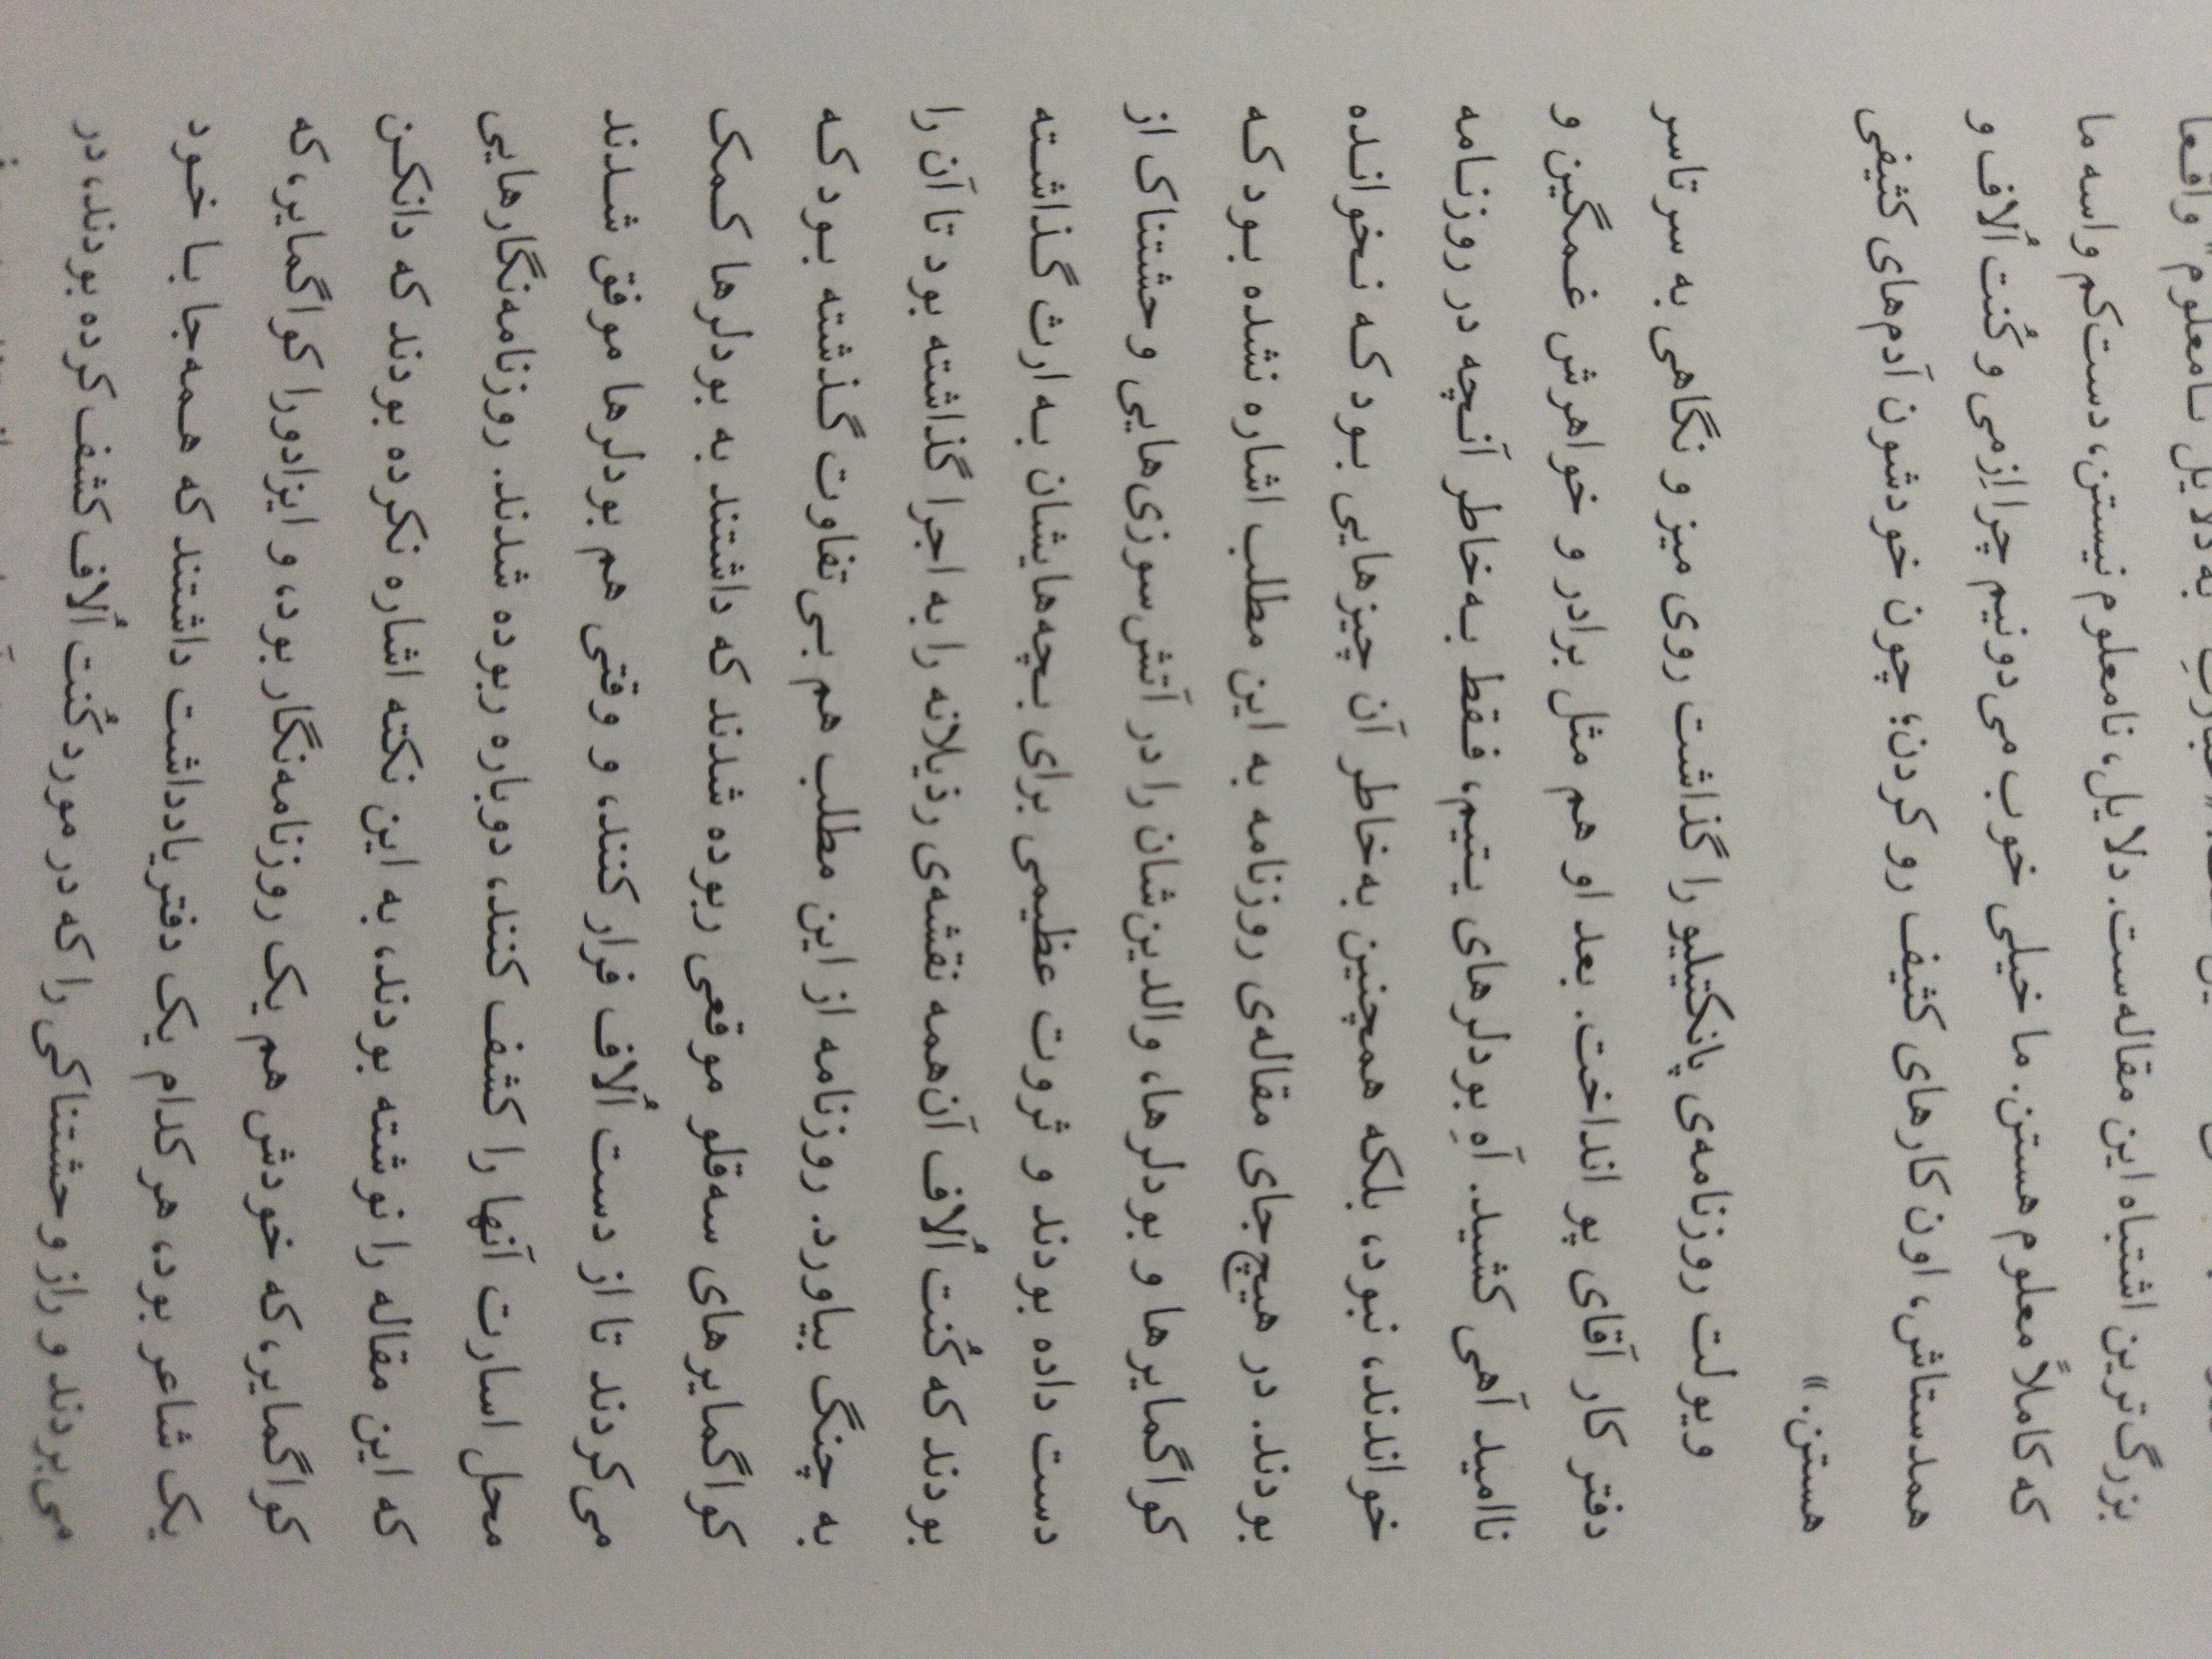 به دلایل نامعلوم" واقعاً
بزرگ‌ترین اشتباه این مقاله‌ست. دلایل، نامعلوم نیستن، دست‌کم واسه ما
که کاملاً معلوم هستن. ما خیلی خوب می‌دونیم چرا اِزمی و کُنت اُلاف و
همدستاش، اون کارهای کثیف رو کردن؛ چون خودشون آدم‌های کثیفی
هستن.»
ویولت روزنامه‌ی پانکتیلیو را گذاشت روی میز و نگاهی به سرتاسر
دفتر کار آقای پو انداخت. بعد او هم مثل برادر و خواهرش غمگین و
ناامید آهی کشید. آهِ بودلرهای یتیم، فقط به‌خاطر آنچه در روزنامه
خواندند، نبود، بلکه همچنین به‌خاطر آن چیزهایی بود که نخوانده
بودند. در هیچ جای مقاله‌ی روزنامه به این مطلب اشاره نشده بود که
کواگمایرها و بودلرها، والدین‌شان را در آتش‌سوزی‌هایی وحشتناک از
دست داده بودند و ثروت عظیمی برای بچه‌هایشان به ارث گذاشته
بودند که کُنت اُلاف آن‌همه نقشه‌ی رذیلانه را به اجرا گذاشته بود تا آن را
به چنگ بیاورد. روزنامه از این مطلب هم بی‌تفاوت گذشته بود که
کواگمایرهای سه‌قلو موقعی ربوده شدند که داشتند به بودلرها کمک
می‌کردند تا از دست اُلاف فرار کنند، و وقتی هم بودلرها موفق شدند
محل اسارت آنها را کشف کنند، دوباره ربوده شدند. روزنامه‌نگارهایی
که این مقاله را نوشته بودند، به این نکته اشاره نکرده بودند که دانکن
کواگمایر، که خودش هم یک روزنامه‌نگار بود، و ایزادورا کواگمایر، که
یک شاعر بود، هر کدام یک دفتر یادداشت داشتند که همه‌جا با خود
می‌بردند و راز وحشتناکی را که در مورد کُنت اُلاف کشف کرده بودند، در